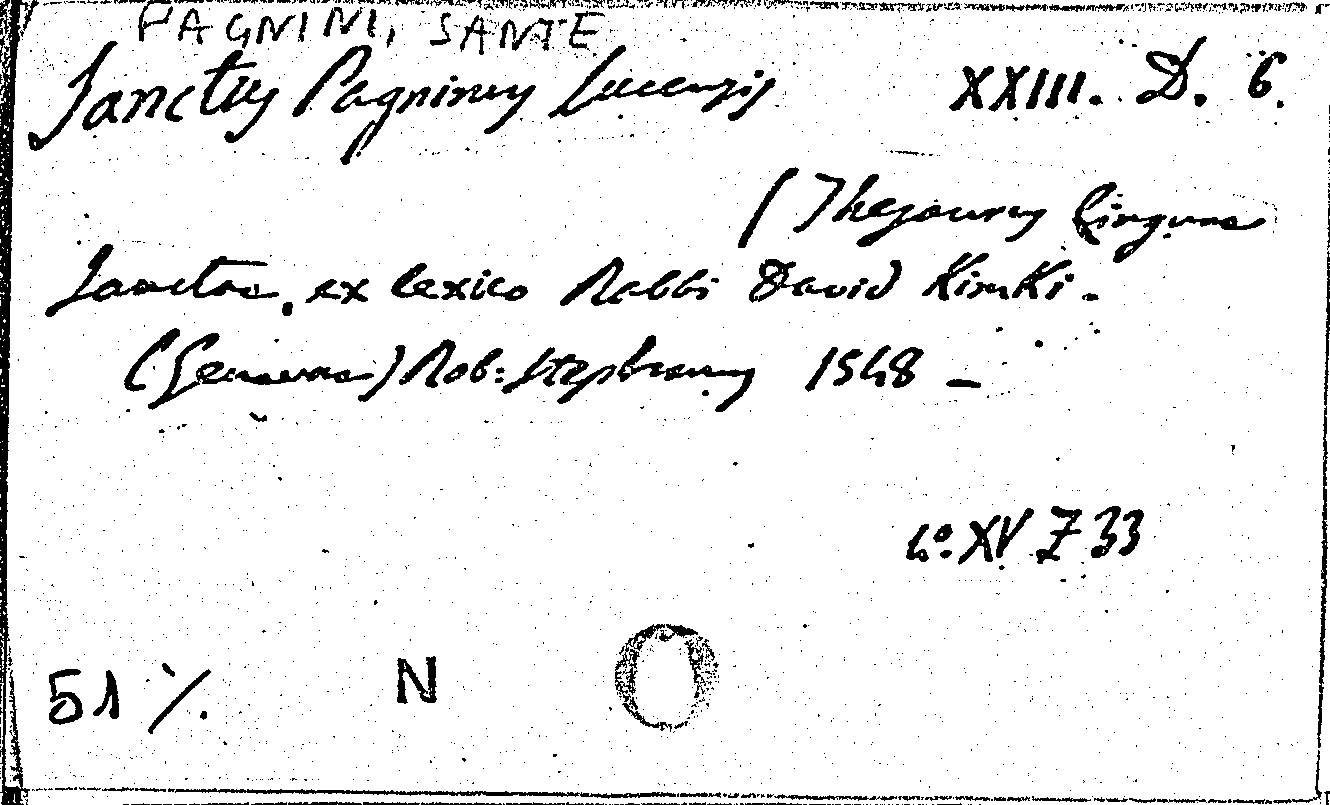 PAGNINI, SANTE
Sanctus Pagninus Lucensis XXIII. D. 6.
( Thesaurus linguae
Sanctae. ex lexico Rabbi David Kimki.
(Genevae) Rob: Stephanus 1548 —
4º. XV Z 33
51 N